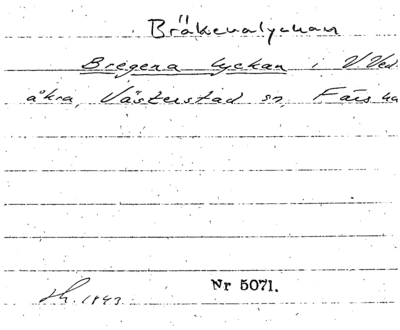 Bräkenalyckan
Bregena lyckan i V Ved
åkra, Västerstad sn, Färs ha
Nr 5071.
1943